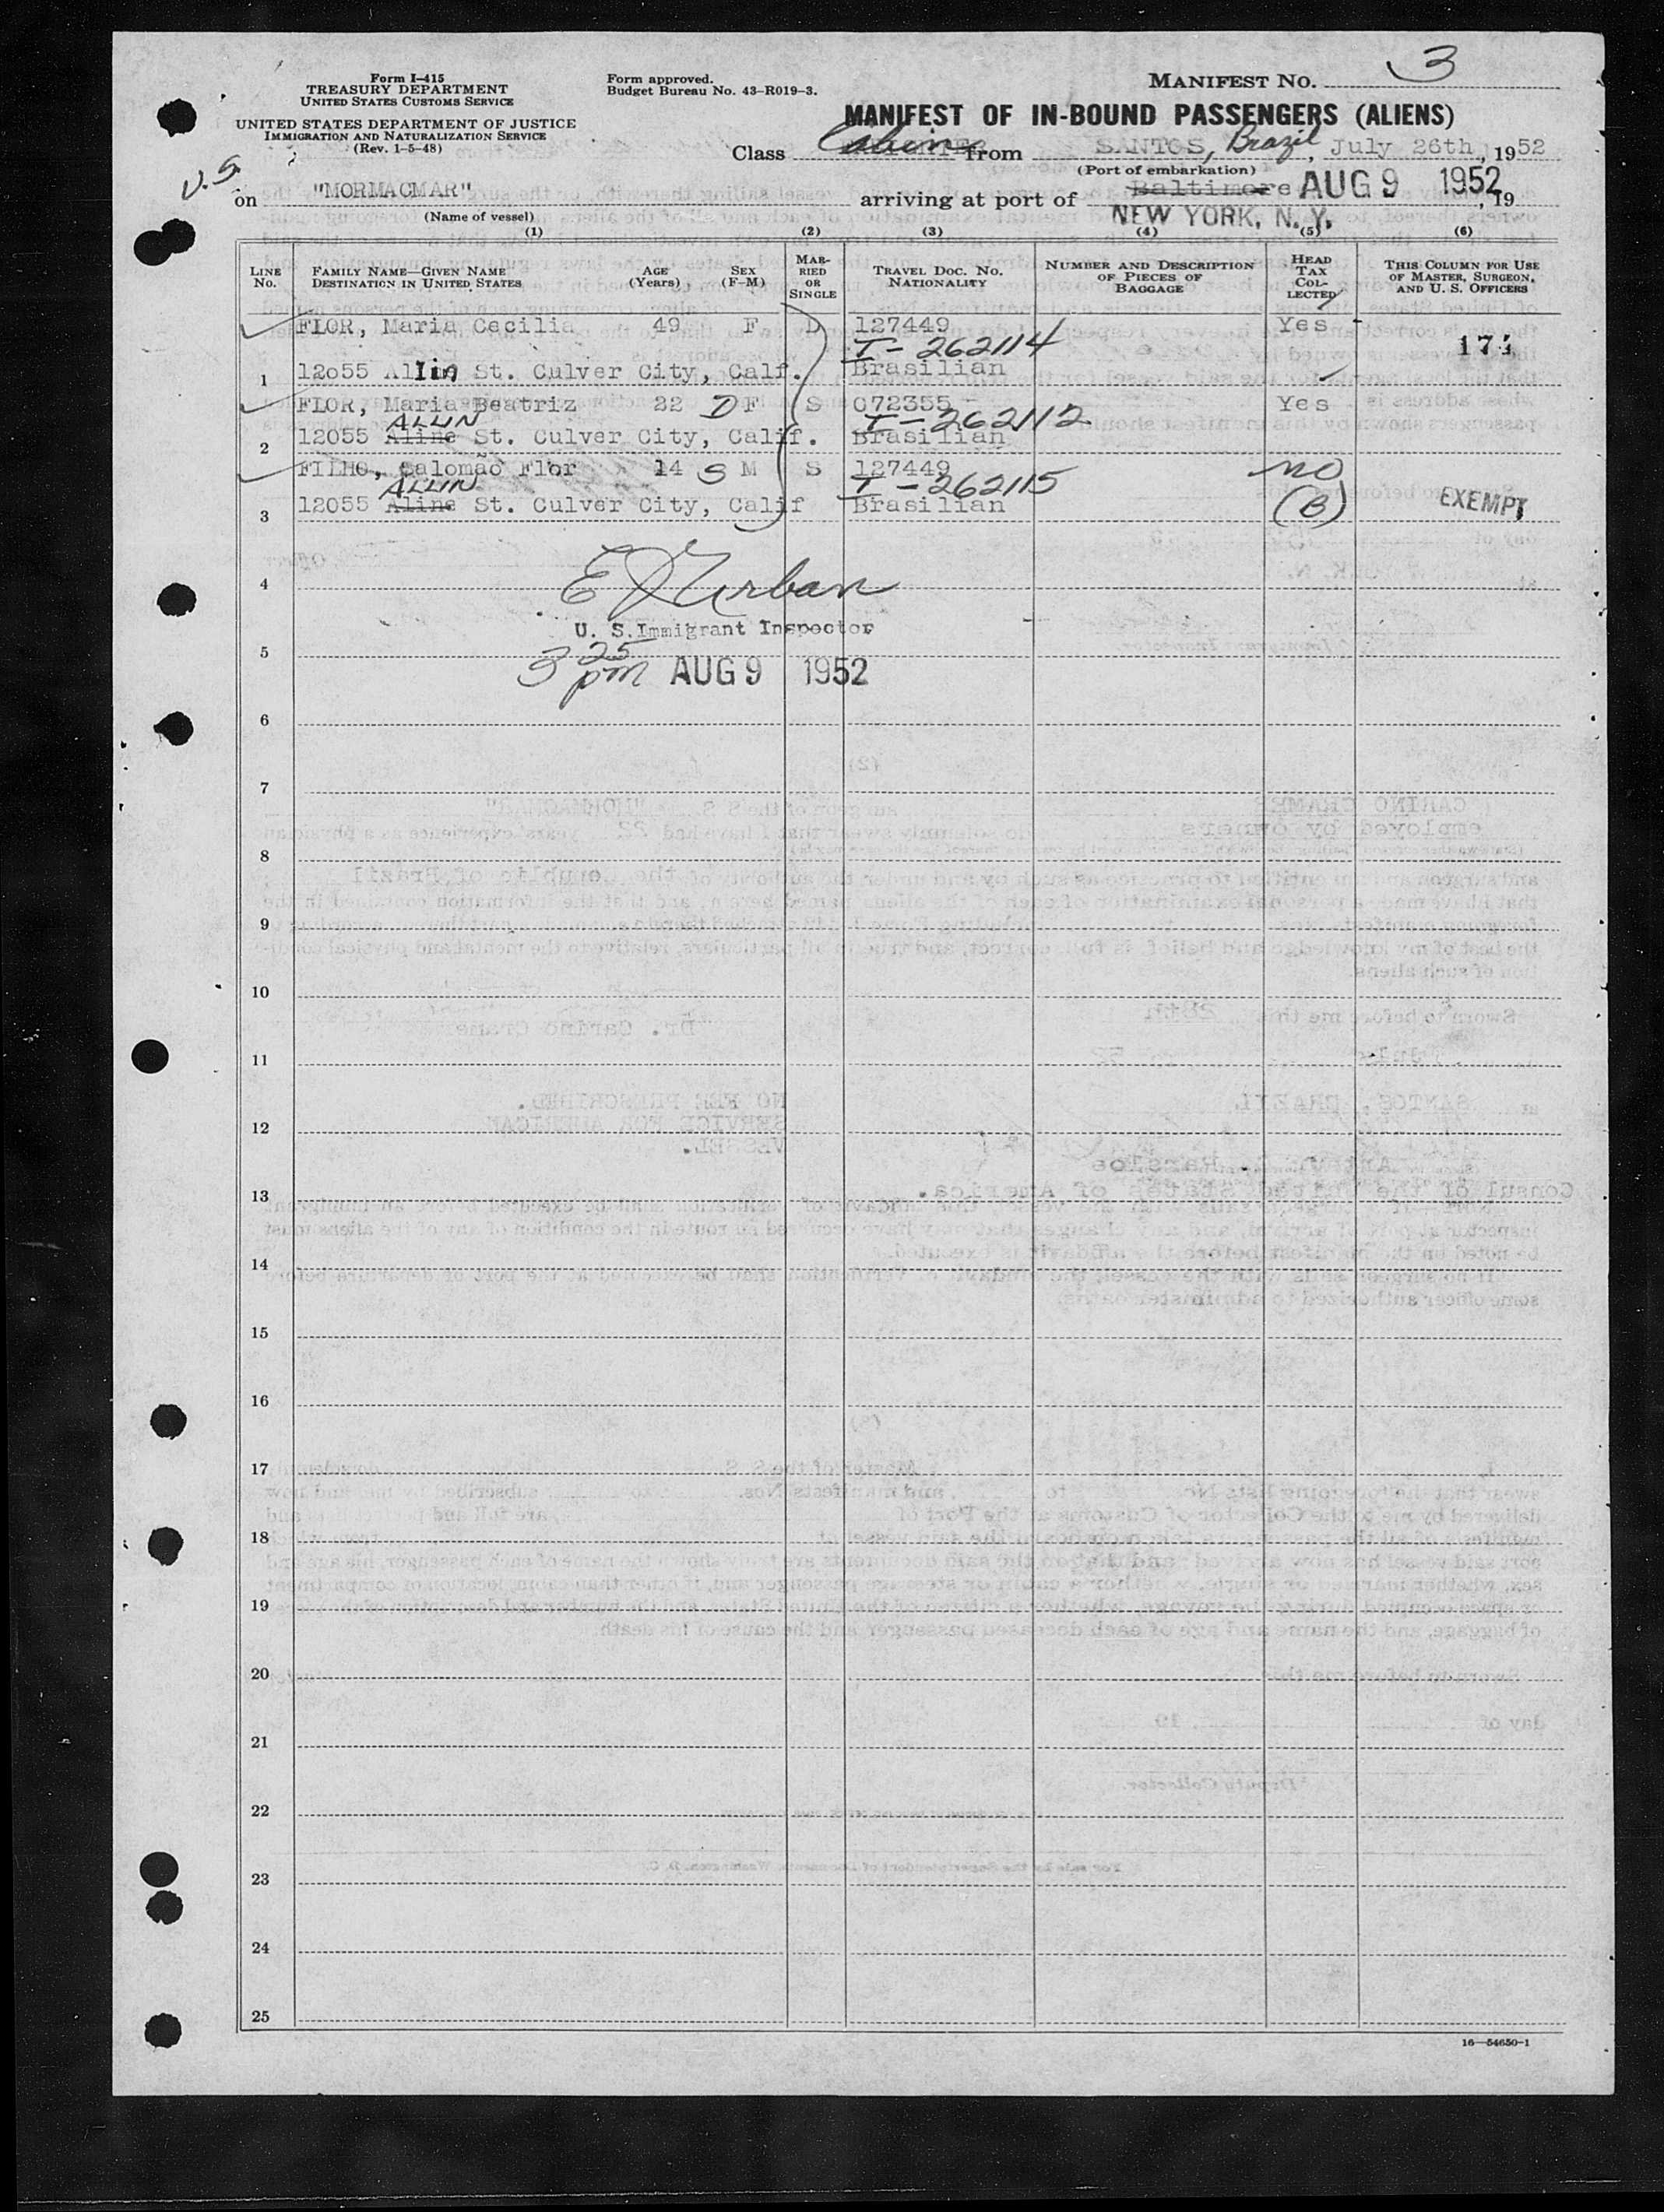 Form I-415
TREASURY DEPARTMENT
UNITED STATES CUSTOMS SERVICE
UNITED STATES DEPARTMENT OF JUSTICE
IMMIGRATION AND NATURALIZATION SERVICE
(Rev. 1-5-48)
Form approved.
Budget Bureau No. 43-R019-3.
MANIFEST NO. 3
MANIFEST OF IN-BOUND PASSENGERS (ALIENS)
Class Cabin from SANTOS, Brazil, July 26th, 1952
(Port of embarkation)
U.S.
on "MORMACMAR" arriving at port of Baltimore AUG 9 1952, 19
(Name of vessel)
NEW YORK, N.Y.
(1) (2) (3) (4) (5) (6)
LINE No.
FAMILY NAME—GIVEN NAME
DESTINATION IN UNITED STATES
AGE (Years)
SEX (F-M)
MARRIED OR SINGLE
TRAVEL DOC. NO.
NATIONALITY
NUMBER AND DESCRIPTION OF PIECES OF BAGGAGE
HEAD TAX COLLECTED
THIS COLUMN FOR USE OF MASTER, SURGEON, AND U. S. OFFICERS
FLOR, Maria Cecilia 49 F D 127449 Yes
I-262114
1 12055 Allin St. Culver City, Calf. Brasilian
FLOR, Maria Beatriz 22 D F S 072355 Yes
ALLIN I-262112
2 12055 Aline St. Culver City, Calif. Brasilian
FILHO, Salomão Flor 14 S M S 127449 no
ALLIN I-262115
3 12055 Aline St. Culver City, Calif Brasilian (B) EXEMPT
4
E J Urban
U. S. Immigrant Inspector
5
3 25 pm AUG 9 1952
6
7
8
9
10
11
12
13
14
15
16
17
18
19
20
21
22
23
24
25
16—54650-1